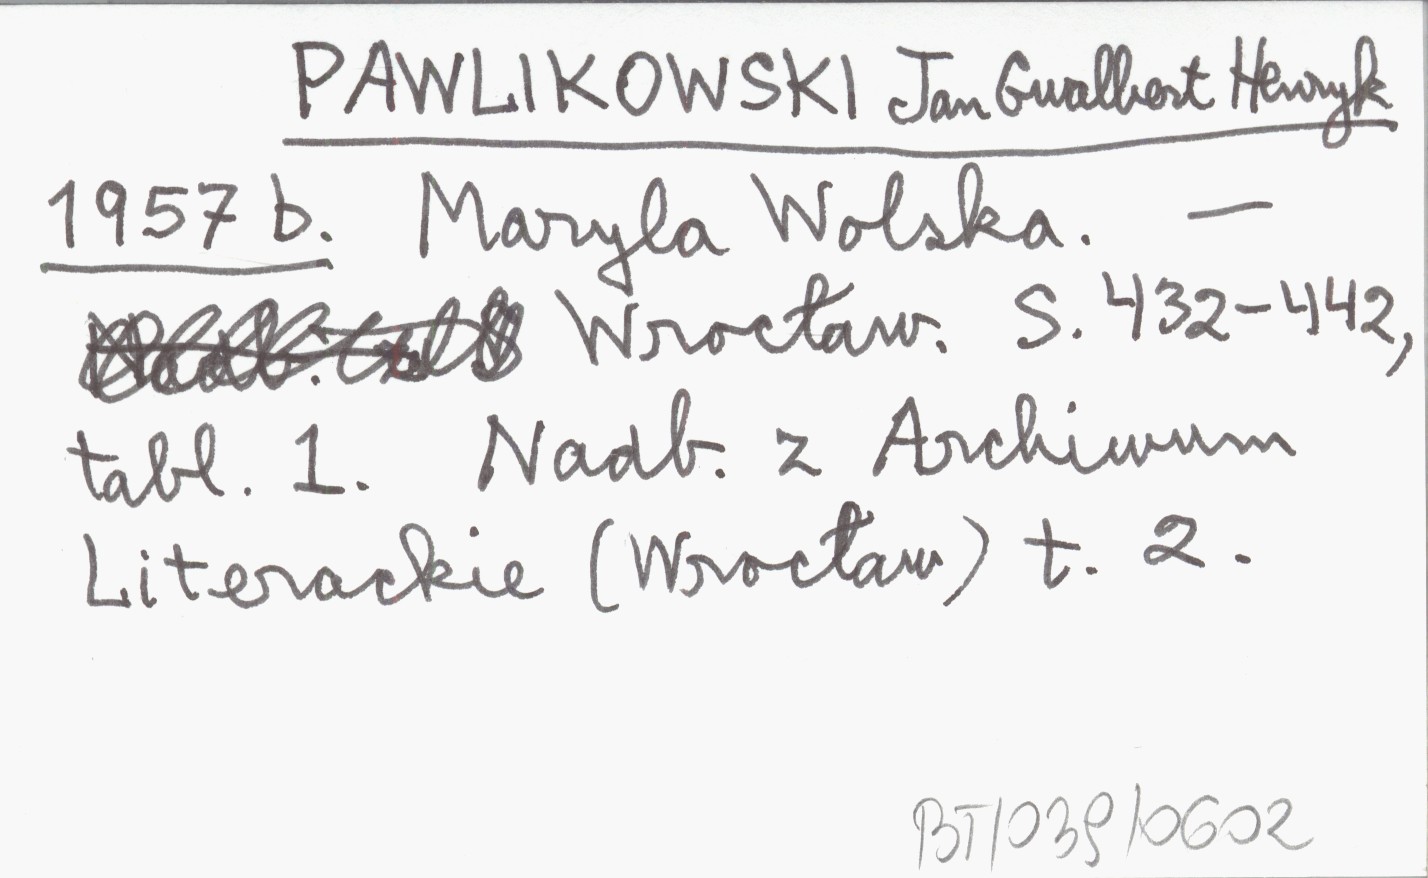 PAWLIKOWSKI Jan Gwalbert Henryk
1957 b. Maryla Wolska. —
Wrocław. S. 432-442,
tabl. 1. Nadb. z Archiwum
Literackie (Wrocław) t. 2.
BT/039/0602